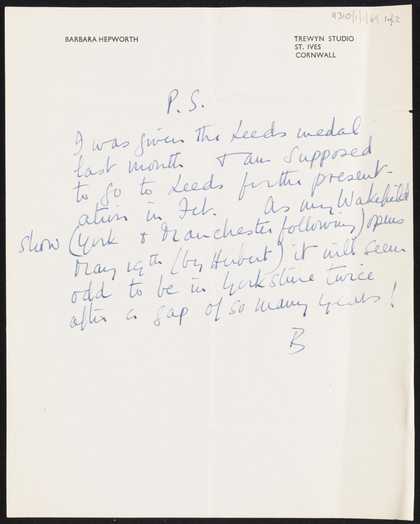 9310/1/1/65 1 of 2
BARBARA HEPWORTH
TREWYN STUDIO
ST. IVES
CORNWALL
P.S.
I was given the Leeds medal
last month & am supposed
to go to Leeds for the present-
ation in Feb. As my Wakefield
show (York & Manchester following) opens
May 19th (by Herbert) it will seem
odd to be in Yorkshire twice
after a gap of so many years!
B